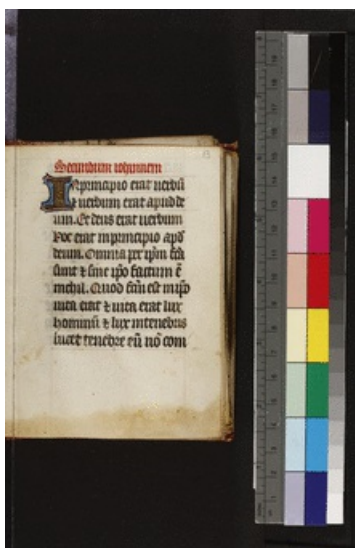 Secundum iohannem
In principio erat uerbū
& uerbum erat apud de
um. Et deus erat uerbum
hoc erat in principio apd
deum. Omnia per ipm fcā
sunt & sine ipo factum ē
nichil. Quod fcm est in ipo
uita erat & uita erat lux
hominū & lux in tenebris
lucet tenebre eū nō com